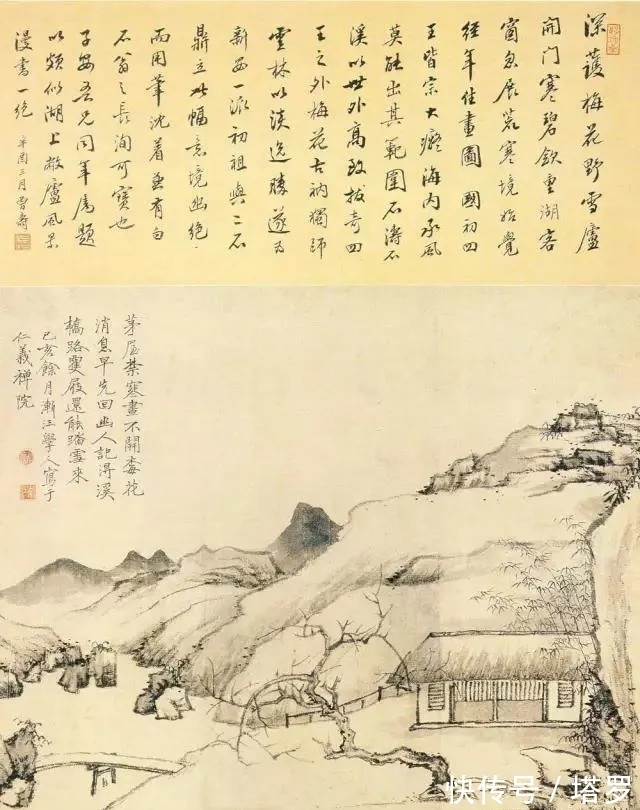 深護梅花野雪廬
開門寒碧欽重湖客
窗忽展荒寒境始覺
經年住畫圖 國初四
王皆宗大癡海內承風
莫能出其範圍石濤石
溪以世外高致拔奇四
王之外梅花古衲獨師
雲林以淡逸勝遂為
新安一派初祖與二石
鼎立此幅意境幽絕
而用筆沈着兼有白
石翁之長洵可寶也
子安吾兄同年屬題
以頗似湖上敝廬風景
漫書一絕 辛酉三月曾壽
茅屋禁寒晝不開梅花
消息早先回幽人記得溪
橋路雙屐還能踏雪來
己亥餘月漸江學人寫于
仁義禪院
快传号/塔罗